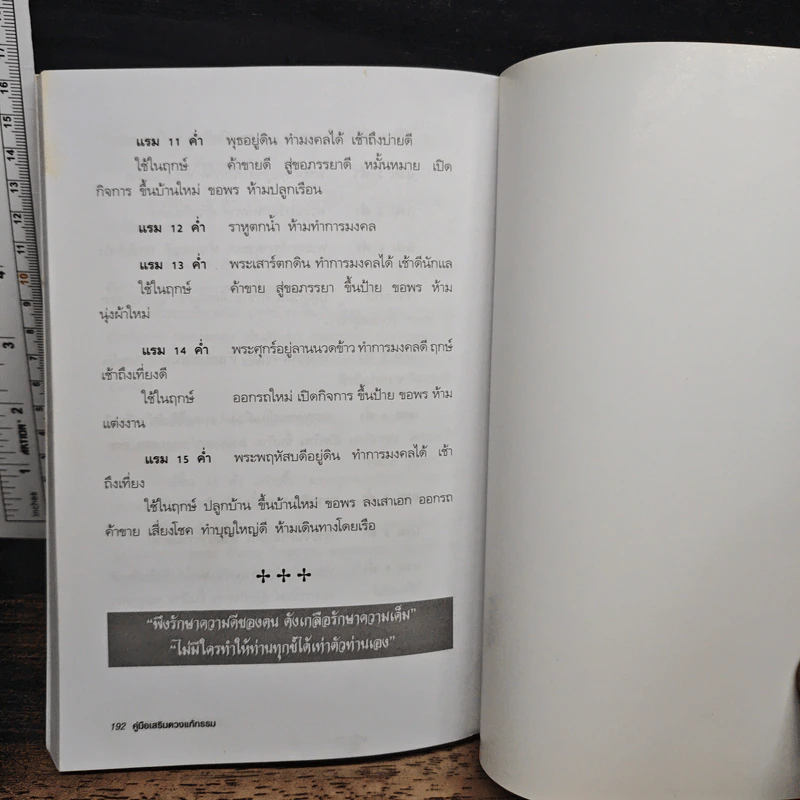 แรม 11 ค่ำ พุธอยู่ดิน ทำมงคลได้ เช้าถึงบ่ายดี
ใช้ในฤกษ์ ค้าขายดี สู่ขอภรรยาดี หมั้นหมาย เปิด
กิจการ ขึ้นบ้านใหม่ ขอพร ห้ามปลูกเรือน
แรม 12 ค่ำ ราหูตกน้ำ ห้ามทำการมงคล
แรม 13 ค่ำ พระเสาร์ตกดิน ทำการมงคลได้ เช้าดีนักแล
ใช้ในฤกษ์ ค้าขาย สู่ขอภรรยา ขึ้นป้าย ขอพร ห้าม
นุ่งผ้าใหม่
แรม 14 ค่ำ พระศุกร์อยู่ลานนวดข้าว ทำการมงคลดี ฤกษ์
เช้าถึงเที่ยงดี
ใช้ในฤกษ์ ออกรถใหม่ เปิดกิจการ ขึ้นป้าย ขอพร ห้าม
แต่งงาน
แรม 15 ค่ำ พระพฤหัสบดีอยู่ดิน ทำการมงคลได้ เช้า
ถึงเที่ยง
ใช้ในฤกษ์ ปลูกบ้าน ขึ้นบ้านใหม่ ขอพร ลงเสาเอก ออกรถ
ค้าขาย เสี่ยงโชค ทำบุญใหญ่ดี ห้ามเดินทางโดยเรือ
"พึงรักษาความดีของตน ดังเกลือรักษาความเค็ม"
"ไม่มีใครทำให้ท่านทุกข์ได้เท่าตัวท่านเอง"
192 คู่มือเสริมดวงแก้กรรม
17
16
15
14
13
12
11
10
9
8
7
6
5
4
3
2
1
inches